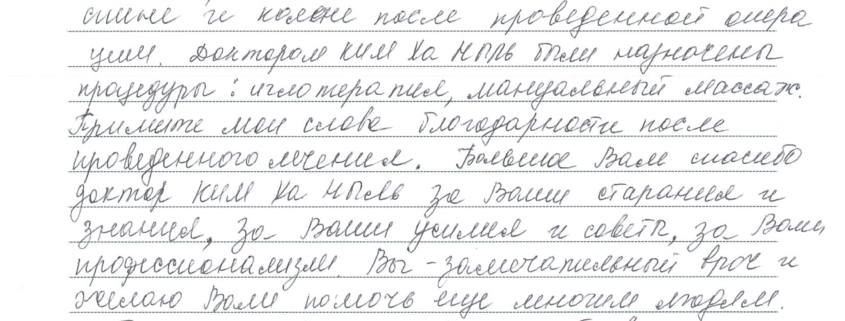 спине и колене после проведенной опера
ции. Доктором Ким Ха Ныль были назначены
процедуры: иглотерапия, мануальный массаж.
Примите мои слова благодарности после
проведенного лечения. Большое Вам спасибо
доктор Ким Ха Ныль за Ваши старания и
знания, за Ваши усилия и советы, за Ваш
профессионализм. Вы - замечательный врач и
желаю Вам помочь еще многим людям.